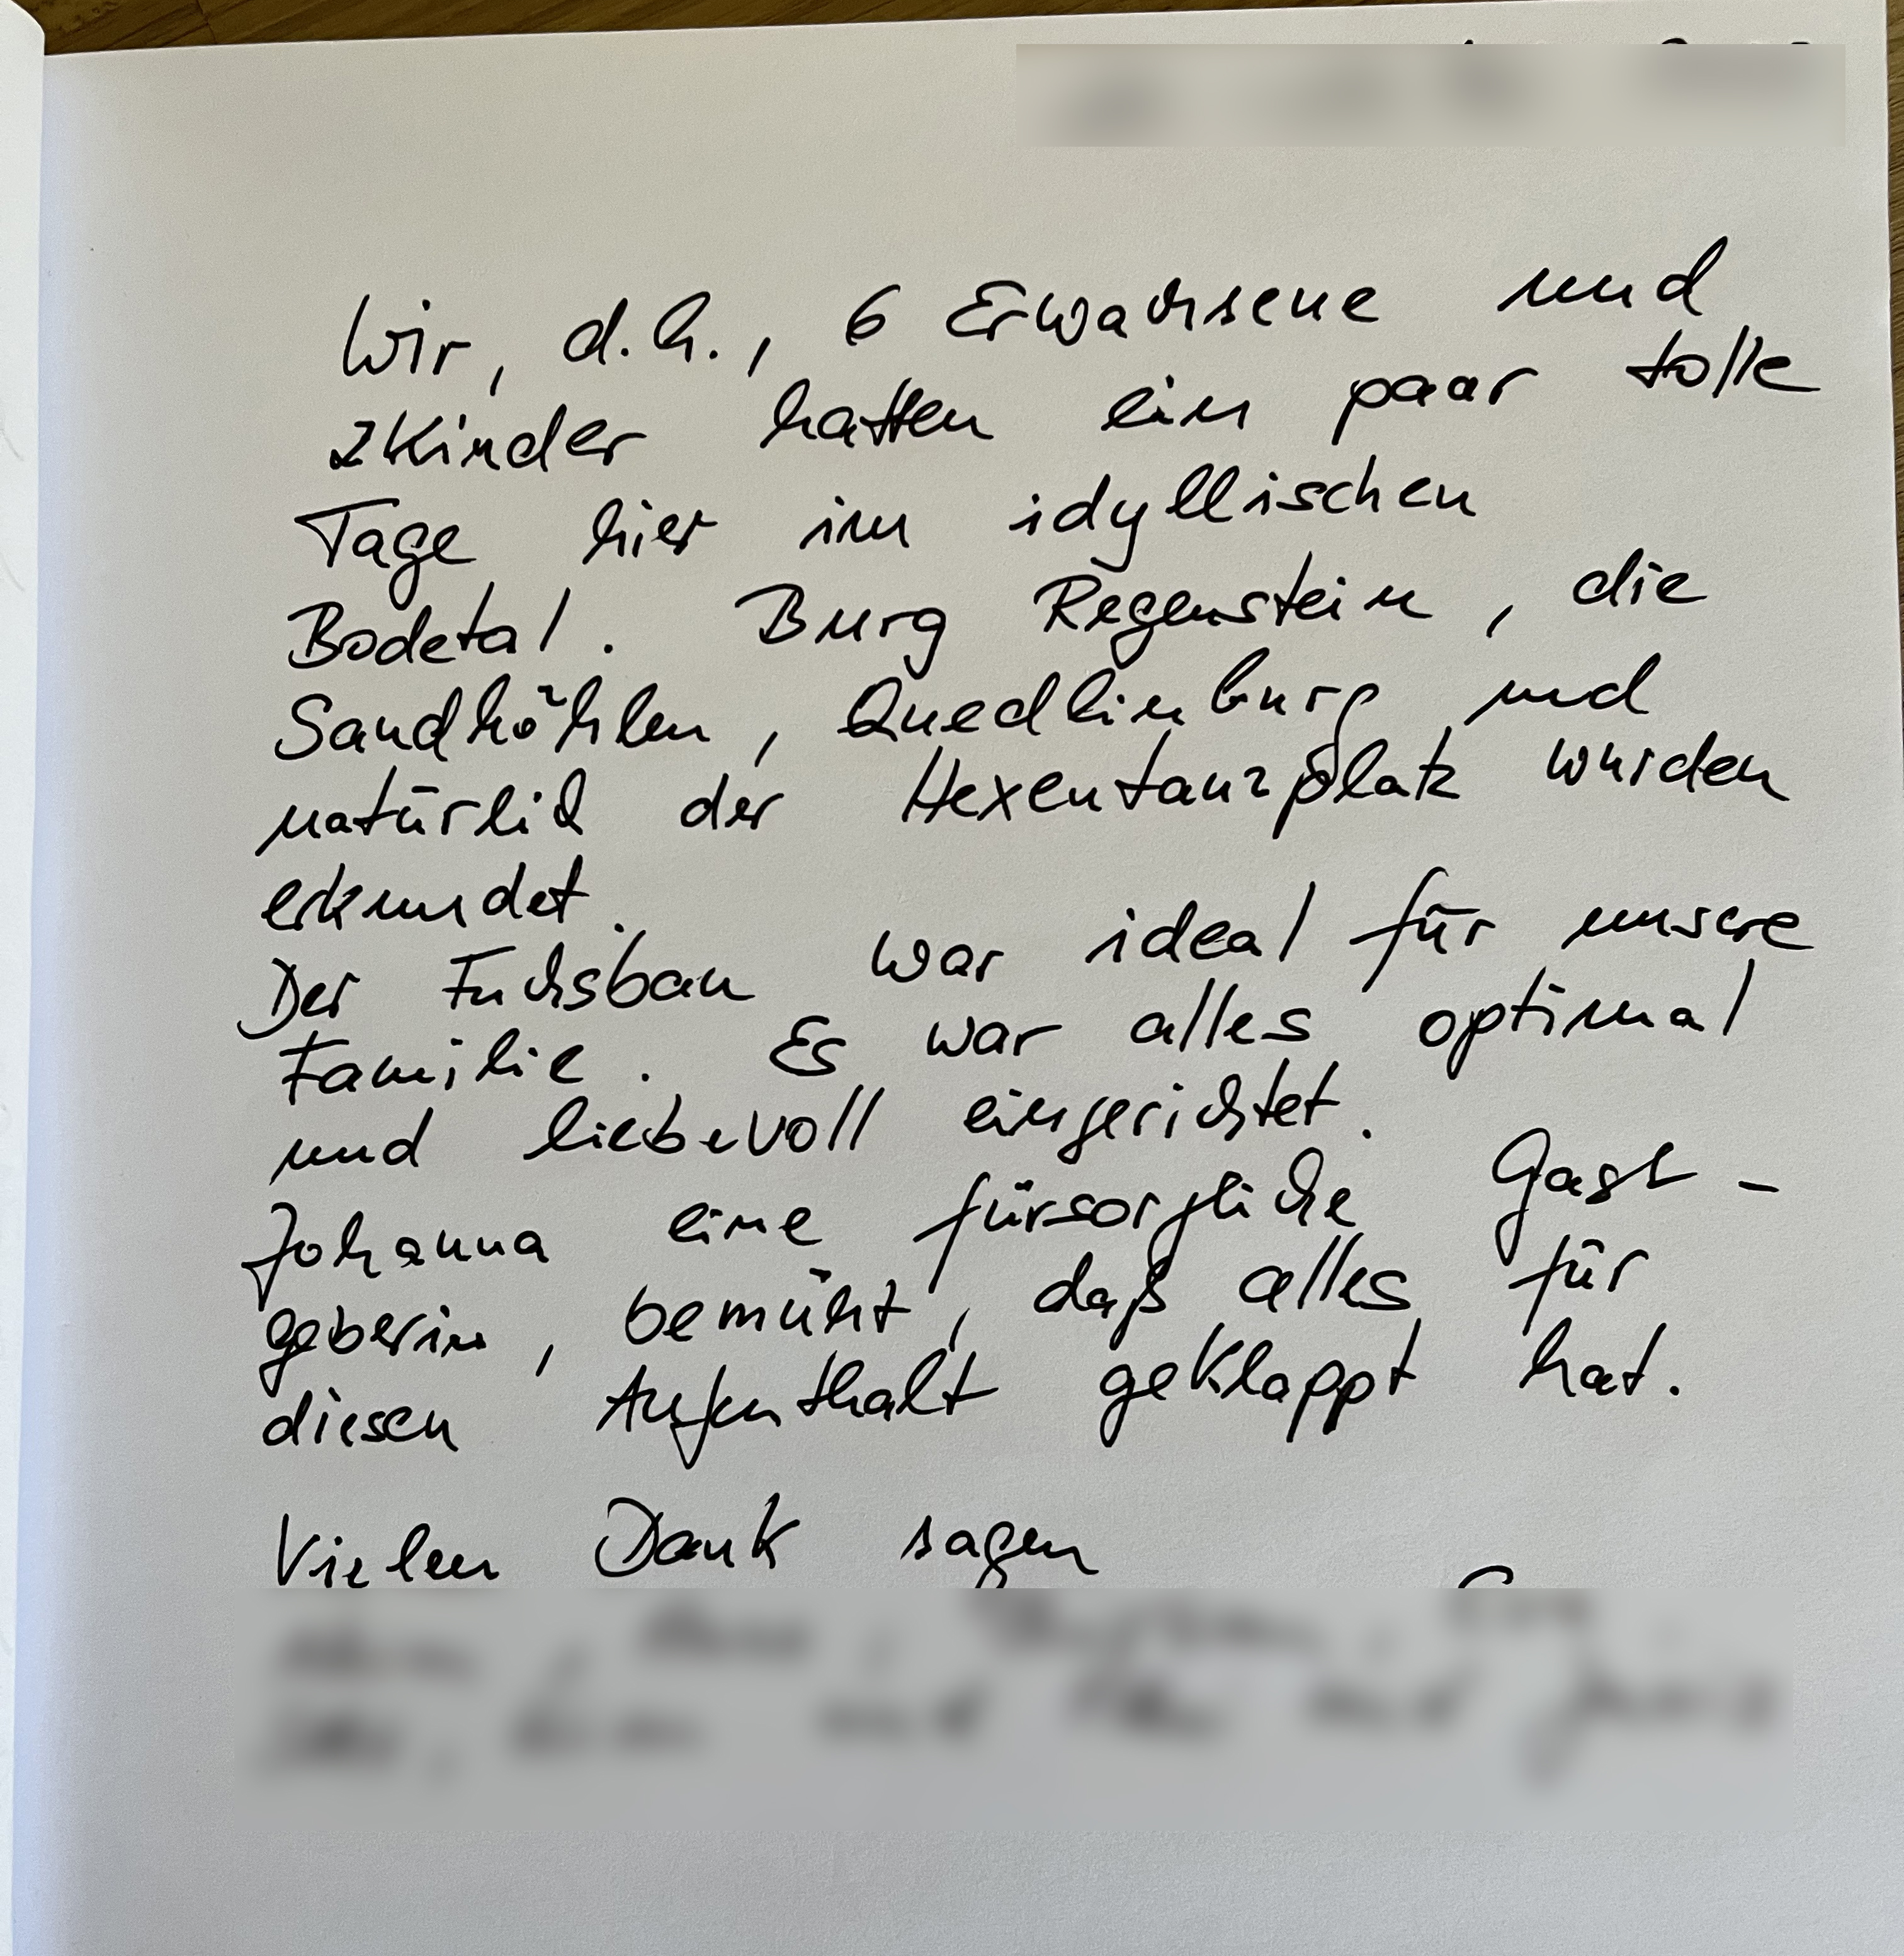 Wir, d.h., 6 Erwachsene und
2 Kinder hatten ein paar tolle
Tage hier im idyllischen
Bodetal. Burg Regenstein, die
Sandhöhlen, Quedlinburg und
natürlich der Hexentanzplatz wurden
erkundet.
Der Fuchsbau war ideal für unsere
Familie. Es war alles optimal
und liebevoll eingerichtet.
Johanna eine fürsorgliche Gast-
geberin, bemüht, daß alles für
diesen Aufenthalt geklappt hat.
Vielen Dank sagen